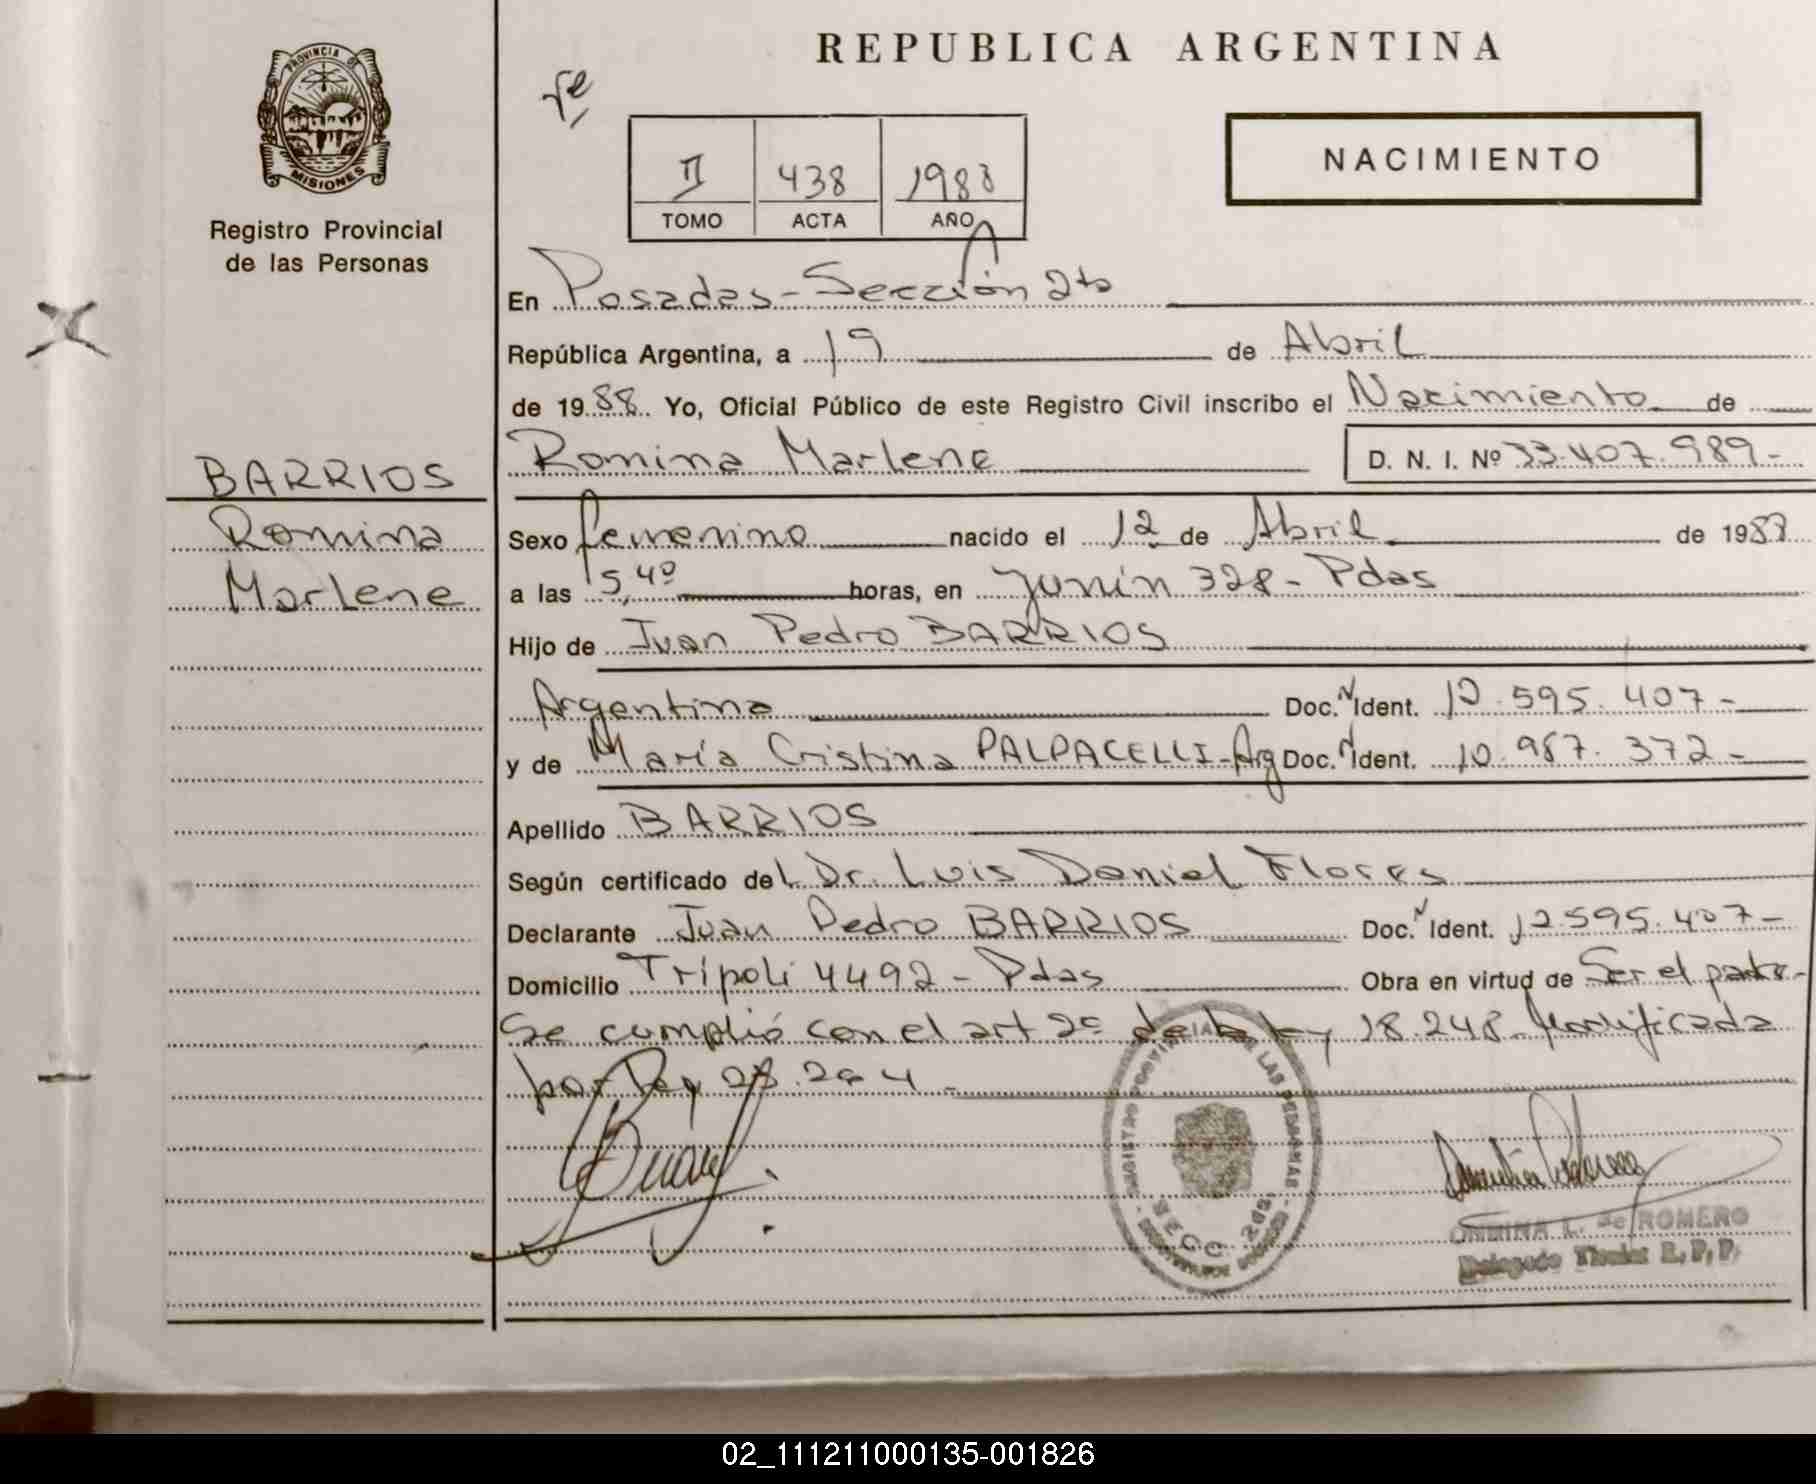 PROVINCIA DE
MISIONES
Registro Provincial
de las Personas
REPUBLICA ARGENTINA
II 438 1988
TOMO ACTA AÑO
NACIMIENTO
En Posadas - Sección 2da
República Argentina, a 19 de Abril
de 1988. Yo, Oficial Público de este Registro Civil inscribo el Nacimiento de
Romina Marlene D. N. I. Nº 33.407.989-
BARRIOS
Romina
Marlene
Sexo femenino nacido el 12 de Abril de 1988
a las 5,40 horas, en Junín 328 - Pdas
Hijo de Juan Pedro BARRIOS
Argentina Doc. Ident. 12.595.407-
y de María Cristina PALPACELLI - Arg Doc. Ident. 10.987.372-
Apellido BARRIOS
Según certificado del Dr. Luis Daniel Flores
Declarante Juan Pedro BARRIOS Doc. Ident. 12.595.407-
Domicilio Trípoli 4492 - Pdas Obra en virtud de Ser el padre-
Se cumplió con el art 2º de la ley 18.248 Modificada
por Ley
REGISTRO PROVINCIAL DE LAS PERSONAS
SECC. 2da
ONDINA L. de ROMERO
Delegado Titular R. P. P.
02_111211000135-001826